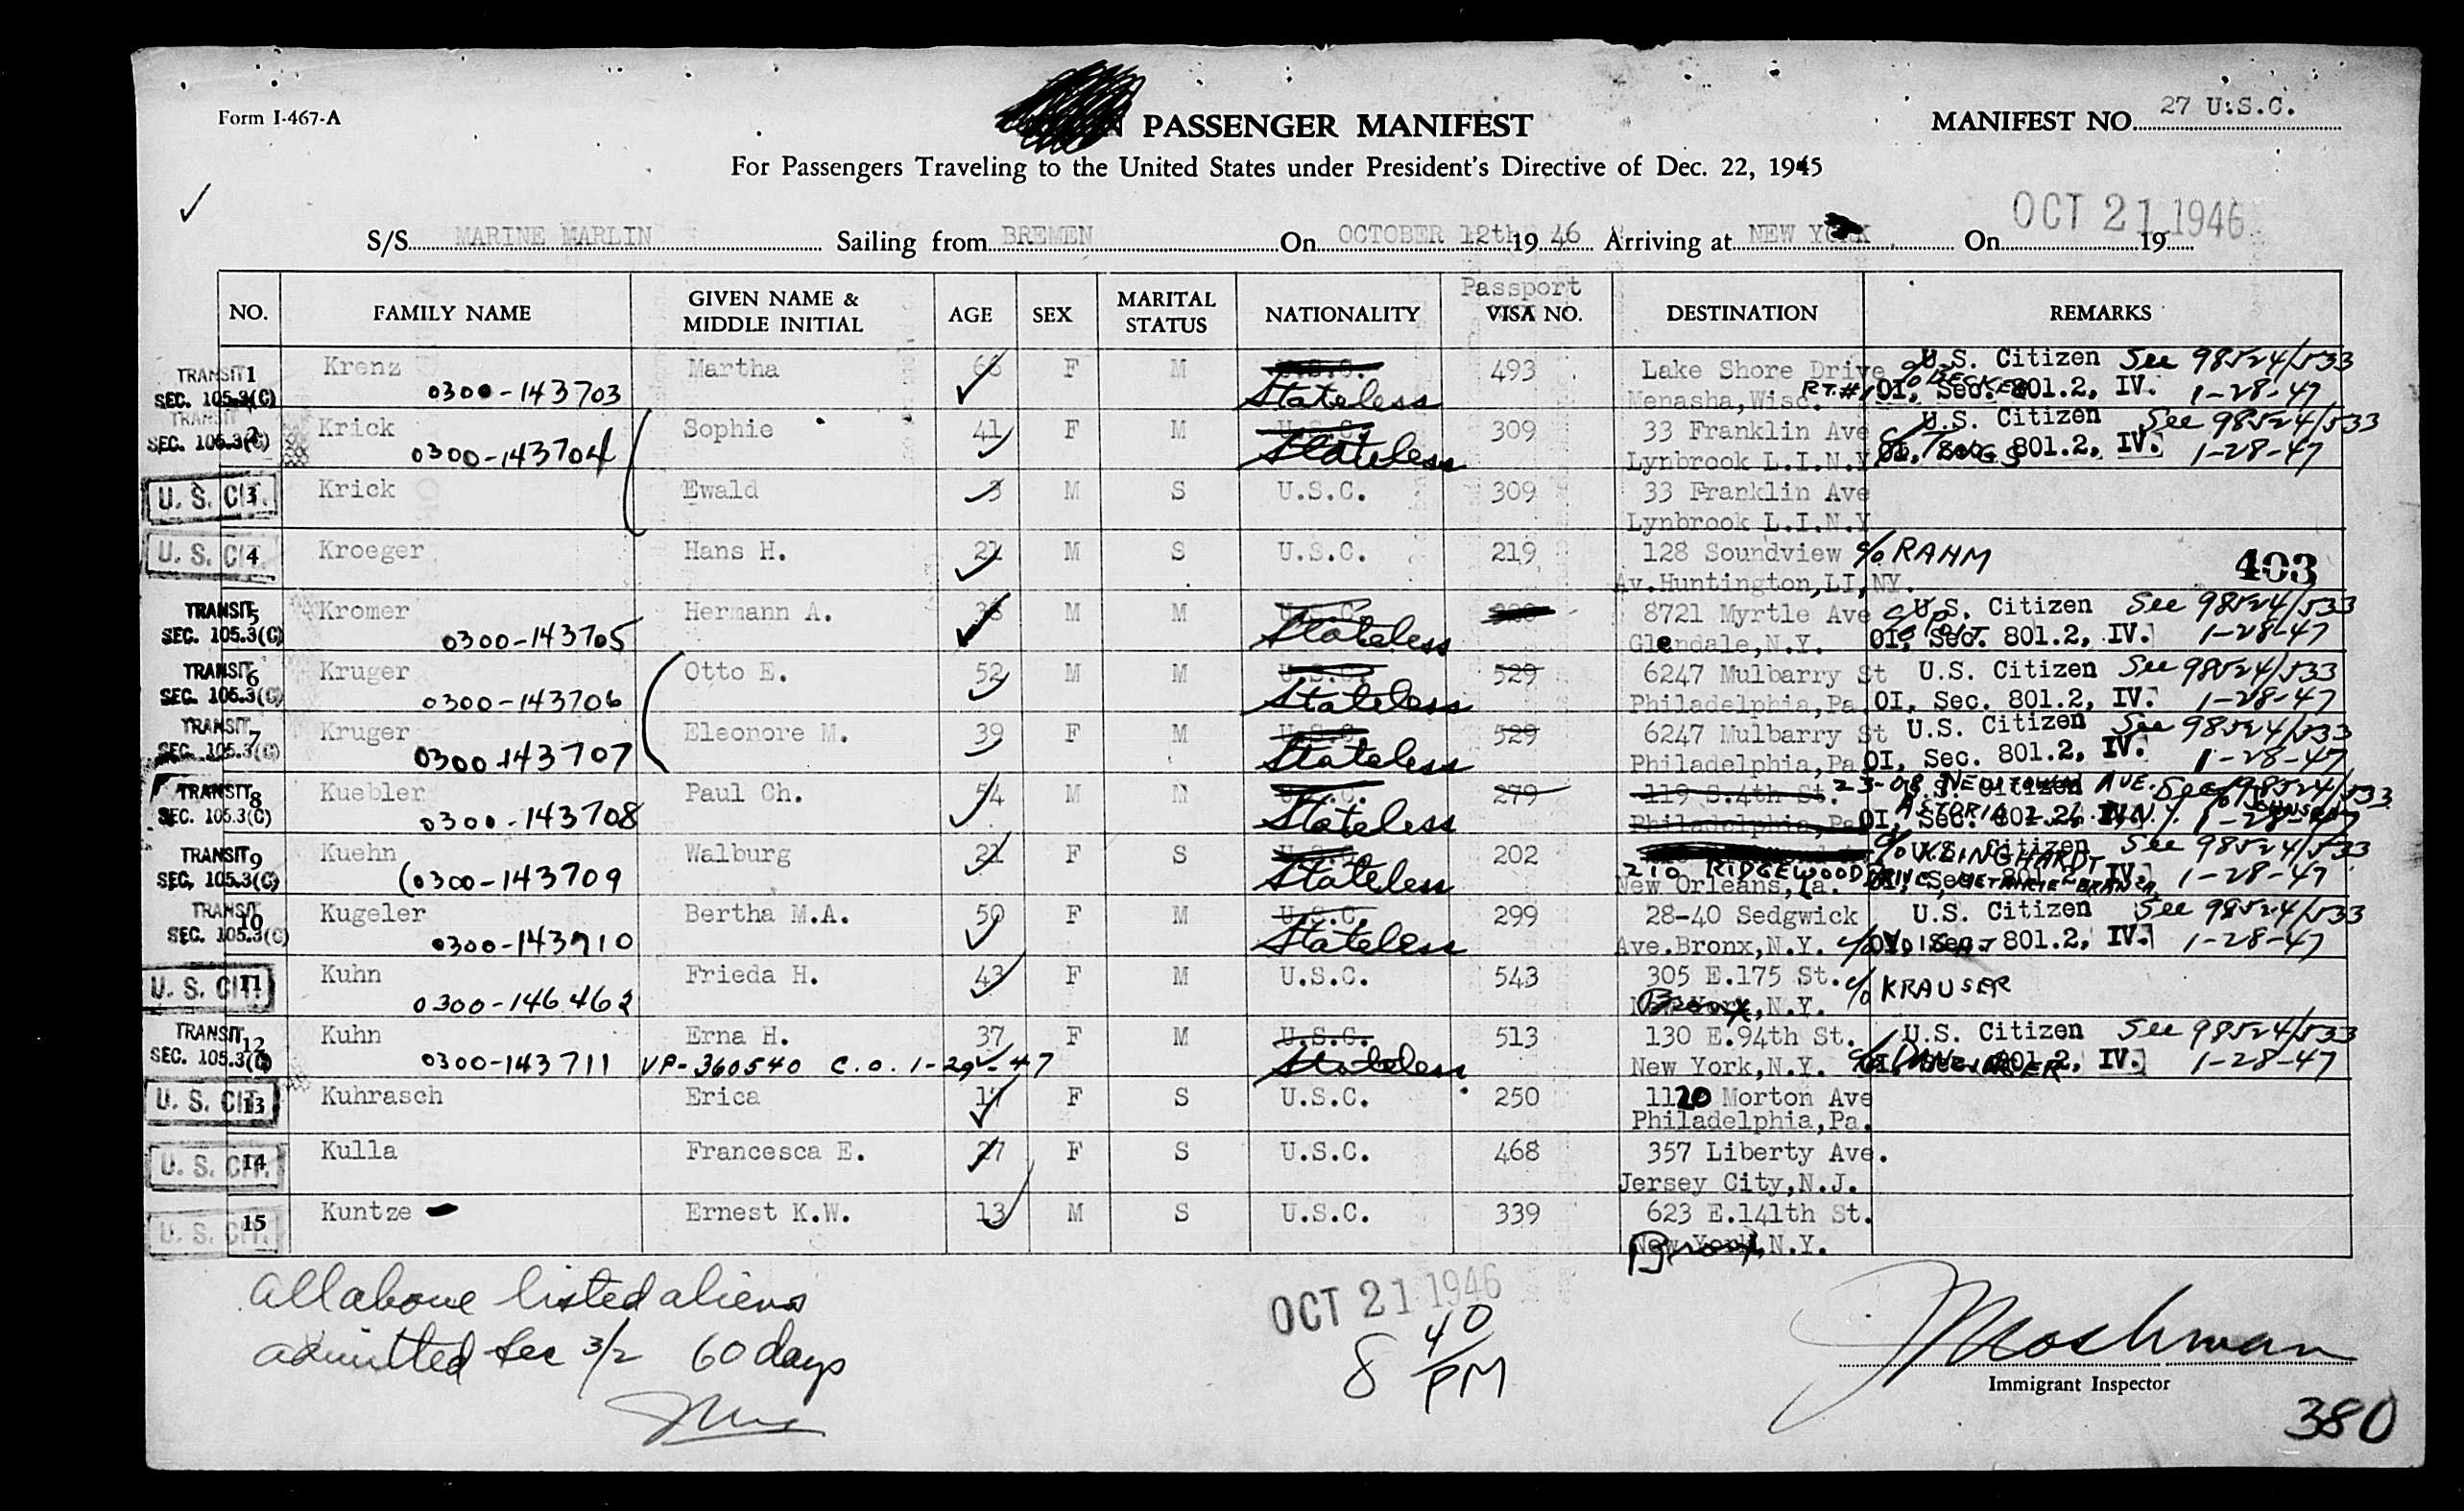 Form I-467-A
PASSENGER MANIFEST
MANIFEST NO. 27 U.S.C.
For Passengers Traveling to the United States under President's Directive of Dec. 22, 1945
S/S MARINE MARLIN Sailing from BREMEN On OCTOBER 12th 19 46 Arriving at NEW YORK On 19 OCT 21 1946
NO. FAMILY NAME GIVEN NAME & MIDDLE INITIAL AGE SEX MARITAL STATUS NATIONALITY Passport VISA NO. DESTINATION REMARKS
TRANSIT 1 Krenz Martha F M U.S.C. 493 Lake Shore Drive U.S. Citizen See 98524/533
SEC. 105.3(C) 0300-143703 Stateless Menasha,Wisc. RT.#1 c/o BECKER OI, Sec. 801.2, IV. 1-28-47
TRANSIT 2 Krick Sophie 41 F M U.S.C. 309 33 Franklin Ave U.S. Citizen See 98524/533
SEC. 105.3(C) 0300-143704 Stateless Lynbrook L.I.N.Y OI, Sec. 801.2, IV. 1-28-47
U. S. CIT. 3 Krick Ewald 3 M S U.S.C. 309 33 Franklin Ave
Lynbrook L.I.N.Y
U. S. CIT. 4 Kroeger Hans H. 21 M S U.S.C. 219 128 Soundview c/o RAHM 403
Av.Huntington,LI,NY.
TRANSIT 5 Kromer Hermann A. M M U.S.C. 8721 Myrtle Ave U.S. Citizen See 98524/533
SEC. 105.3(C) 0300-143705 Stateless Glendale,N.Y. OI, Sec. 801.2, IV. 1-28-47
TRANSIT 6 Kruger Otto E. 52 M M U.S.C. 529 6247 Mulbarry St U.S. Citizen See 98524/533
SEC. 105.3(C) 0300-143706 Stateless Philadelphia,Pa OI, Sec. 801.2, IV. 1-28-47
TRANSIT 7 Kruger Eleonore M. 39 F M U.S.C. 529 6247 Mulbarry St U.S. Citizen See 98524/533
SEC. 105.3(C) 0300-143707 Stateless Philadelphia,Pa OI, Sec. 801.2, IV. 1-28-47
TRANSIT 8 Kuebler Paul Ch. 54 M M U.S.C. 279 119 S.4th St. 23-08 NEWTOWN AVE. U.S. Citizen See 98524/533
SEC. 105.3(C) 0300-143708 Stateless Philadelphia,Pa ASTORIA c/o JOHNSON OI, Sec. 801.2, IV. 1-28-47
TRANSIT 9 Kuehn Walburg 21 F S U.S.C. 202 c/o KLINGHARDT U.S. Citizen See 98524/533
SEC. 105.3(C) 0300-143709 Stateless 210 RIDGEWOOD DRIVE, METAIRIE BRANCH New Orleans,La. OI, Sec. 801.2, IV. 1-28-47
TRANSIT 10 Kugeler Bertha M.A. 50 F M U.S.C. 299 28-40 Sedgwick U.S. Citizen See 98524/533
SEC. 105.3(C) 0300-143710 Stateless Ave.Bronx,N.Y. OI, Sec. 801.2, IV. 1-28-47
U. S. CIT. 11 Kuhn Frieda H. 43 F M U.S.C. 543 305 E.175 St. c/o KRAUSER
0300-146462 New York Bronx,N.Y.
TRANSIT 12 Kuhn Erna H. 37 F M U.S.C. 513 130 E.94th St. U.S. Citizen See 98524/533
SEC. 105.3(C) 0300-143711 VP-360540 C.O. 1-29-47 Stateless New York,N.Y. OI, Sec. 801.2, IV. 1-28-47
U. S. CIT. 13 Kuhrasch Erica 17 F S U.S.C. 250 1120 Morton Ave
Philadelphia,Pa.
U. S. CIT. 14 Kulla Francesca E. 27 F S U.S.C. 468 357 Liberty Ave.
Jersey City,N.J.
U. S. CIT. 15 Kuntze Ernest K.W. 13 M S U.S.C. 339 623 E.141th St.
New York Bronx,N.Y.
All above listed aliens
admitted Sec 3/2 60 days
OCT 21 1946
8 40 PM
Immigrant Inspector
380